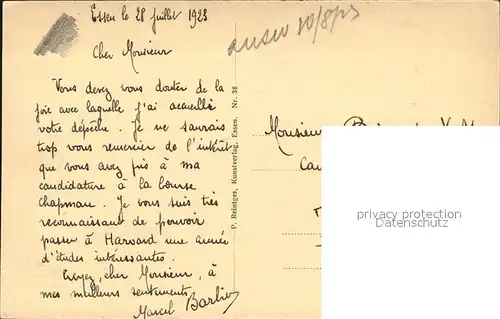 Essen le 28 juillet 1923
answ 30/8/23
Cher Monsieur
Vous devez vous douter de la
joie avec laquelle j'ai accueilli
votre dépêche. Je ne saurais
trop vous remercier de l'intérêt
que vous avez pris à ma
candidature à la bourse
Chapman. Je vous suis très
reconnaissant de pouvoir
passer à Harvard une année
d'études intéressantes.
Croyez, cher Monsieur, à
mes meilleurs sentements
Marcel Barbier
P. Reintges, Kunstverlag, Essen. Nr. 38
Monsieur
privacy protection
www.ansichtskarten-center.de